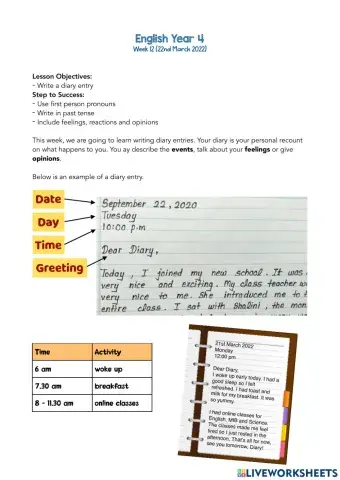 English Year 4
Week 12 (22nd March 2022)
Lesson Objectives:
- Write a diary entry
Step to Success:
- Use first person pronouns
- Write in past tense
- Include feelings, reactions and opinions
This week, we are going to learn writing diary entries. Your diary is your personal recount
on what happens to you. You ay describe the events, talk about your feelings or give
opinions.
Below is an example of a diary entry.
Date
Day
Time
Greeting
September 22, 2020
Tuesday
10:00 p.m
Dear Diary,
Today, I joined my new school. It was
very nice and exciting. My class teacher
very nice to me. She introduced me to
entire class. I sat with Shalini, the
Time Activity
6 am woke up
7.30 am breakfast
8 - 11.30 am online classes
21st March 2022
Monday
12:00 pm
Dear Diary,
I woke up early today. I had a
good sleep so I felt
refreshed. I had toast and
milk for my breakfast. It was
so yummy.
I had online classes for
English, MIB and Science.
The classes made me feel
tired so I just rested in the
afternoon. That's all for now,
see you tomorrow, Diary!
LIVEWORKSHEETS